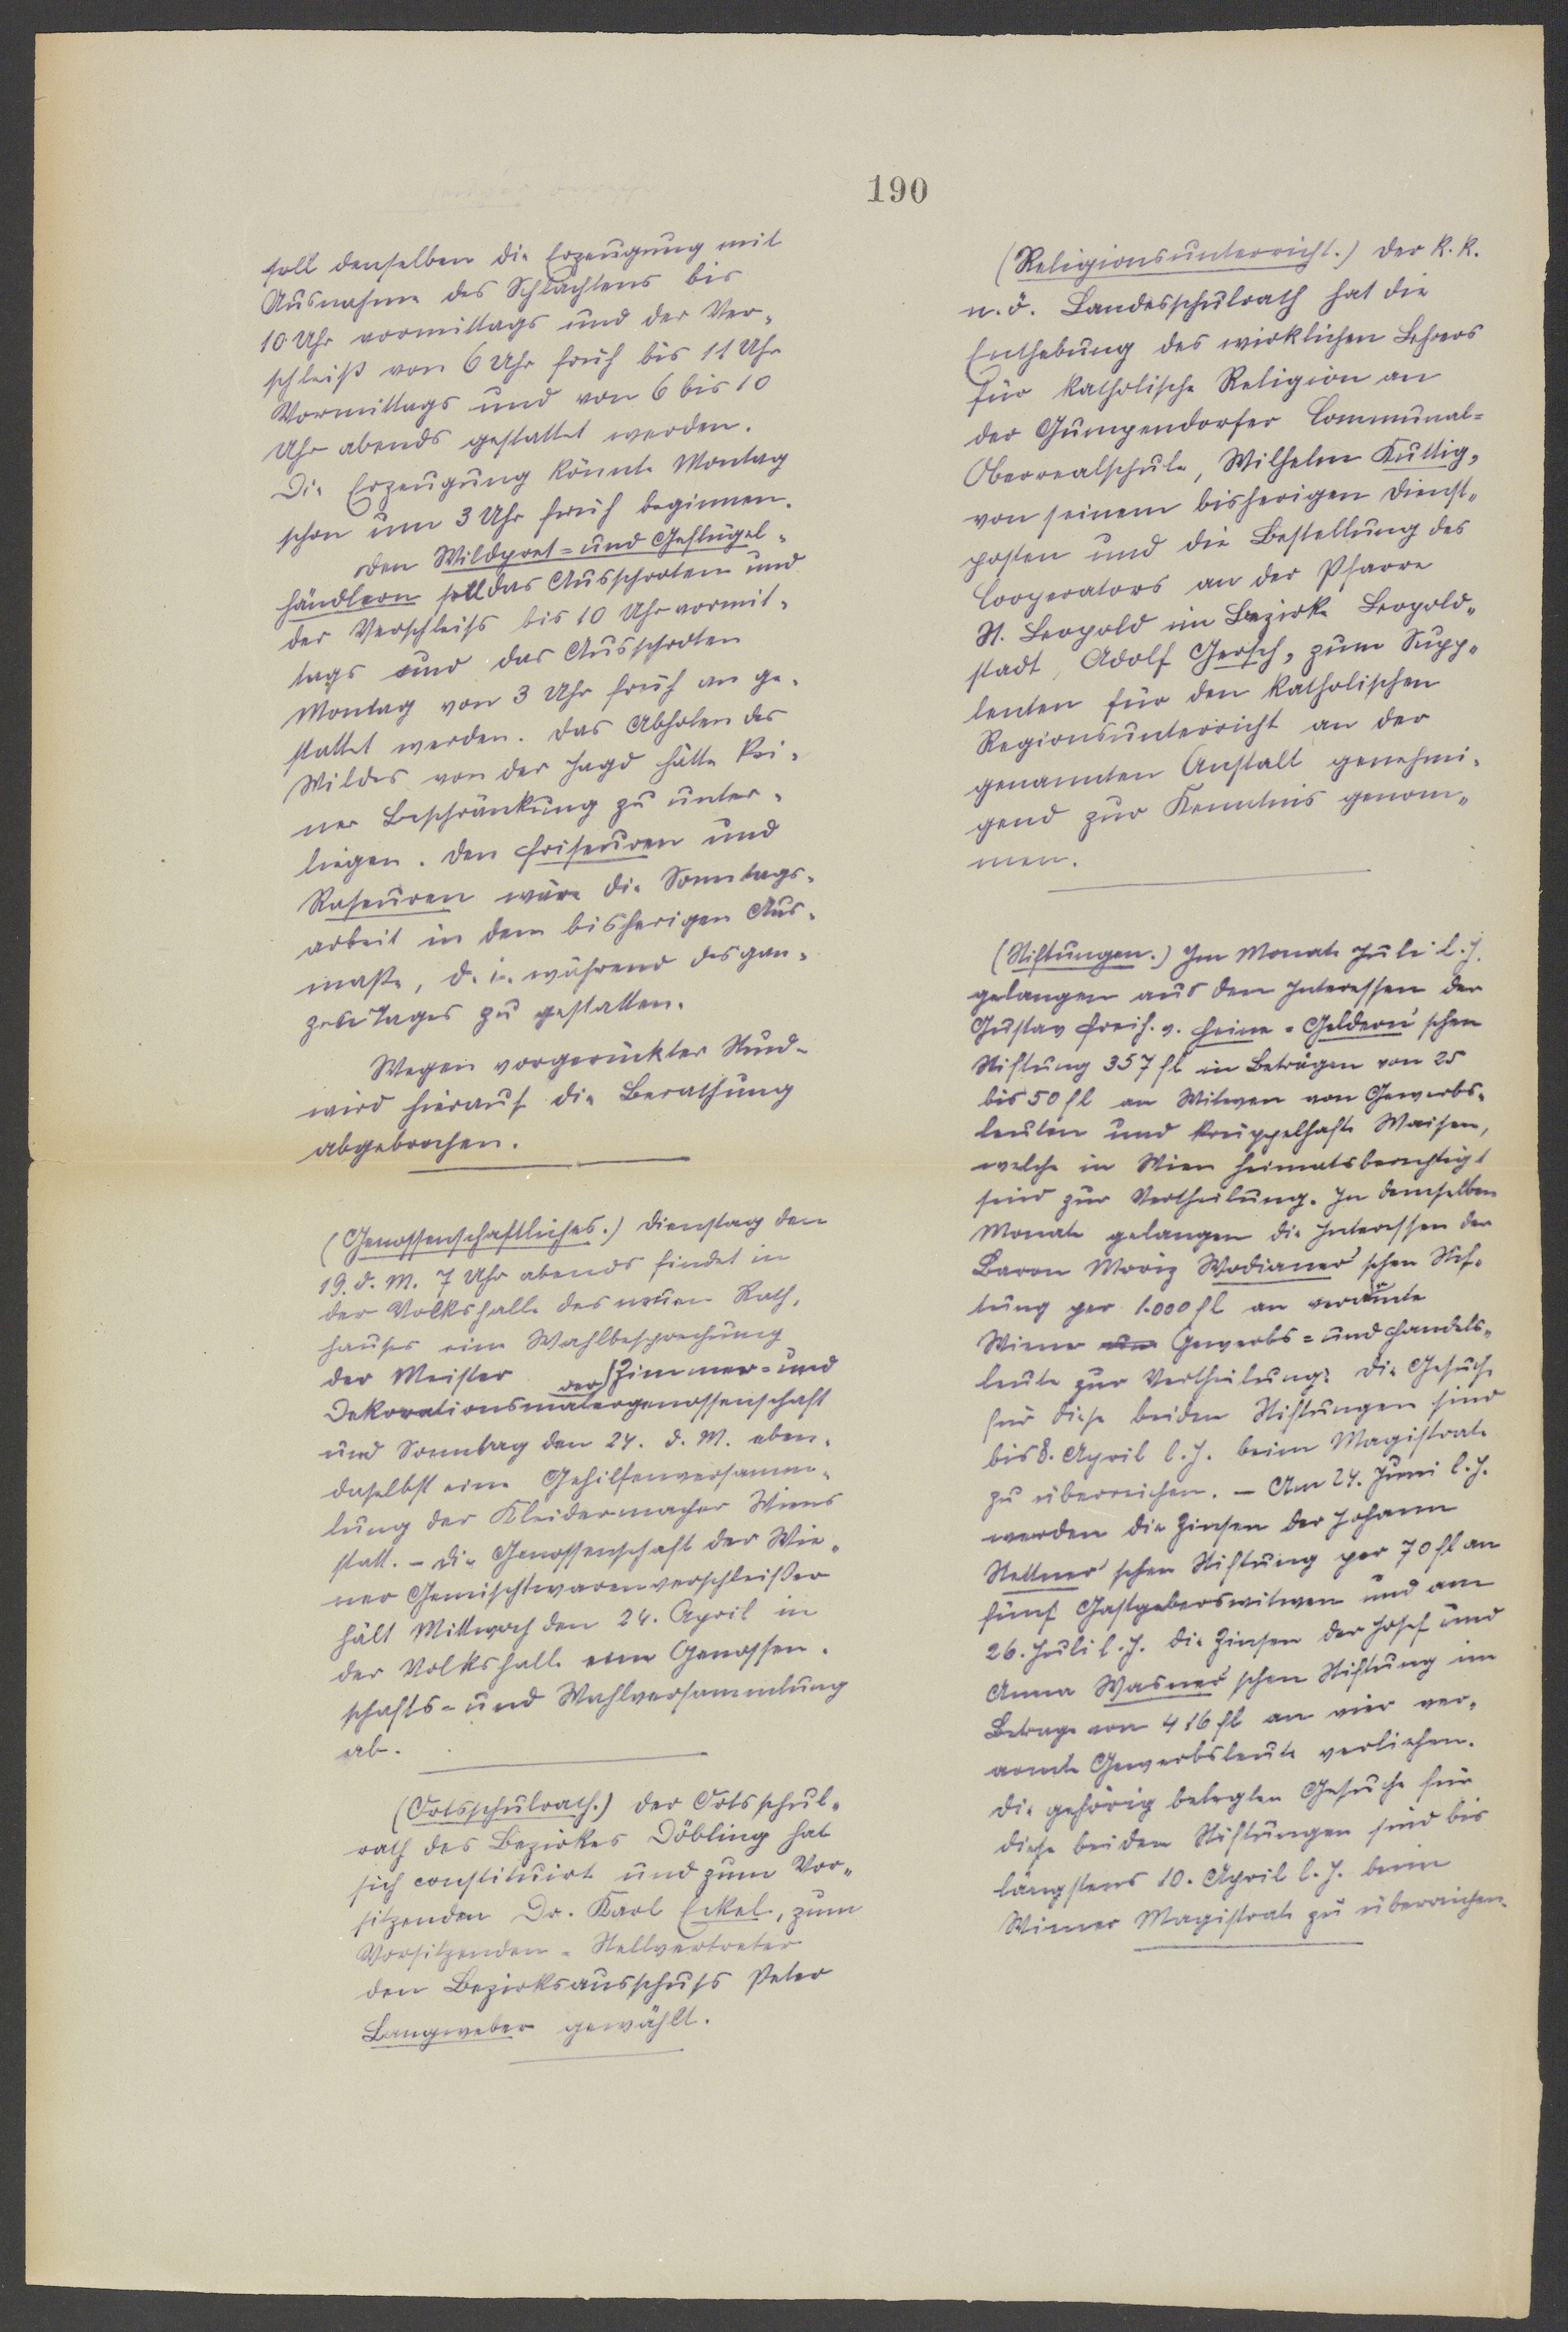 190
soll denselben die Erzeugung mit
Ausnahme des Schlachtens bis
10 Uhr vormittags und der Ver-
schleiß von 6 Uhr früh bis 11 Uhr
Vormittags und von 6 bis 10
Uhr abends gestattet werden.
Die Erzeugung könnte Montag
schon um 3 Uhr früh beginnen.
Den Wildpret= und Geflügel-
händlern soll das Ausschroten und
der Verschleiß bis 10 Uhr vormit-
tags und das Ausschroten
Montag von 3 Uhr früh an ge-
stattet werden. Das Abholen des
Wildes von der Jagd hätte kei-
ner Beschränkung zu unter-
liegen. Den Friseuren und
Raseuren wäre die Sonntags-
arbeit in dem bisherigen Aus-
maße, d. i. während des gan-
zen Tages zu gestatten.
Wegen vorgerückter Stunde
wird hierauf die Berathung
abgebrochen.
(Genossenschaftliches.) Dienstag den
19. d. M. 7 Uhr abends findet in
der Volkshalle des neuen Rath-
hauses eine Wahlbesprechung
der Meister der Zimmer= und
Dekorationsmalergenossenschaft
und Sonntag den 24. d. M. eben-
daselbst eine Gehilfenversamm-
lung der Kleidermacher Wiens
statt. – Die Genossenschaft der Wie-
ner Gemischtwarenverschleißer
hält Mittwoch den 24. April in
der Volkshalle eine Genossen-
schafts= und Wahlversammlung
ab.
(Ortsschulrath.) Der Ortsschul-
rath des Bezirkes Döbling hat
sich constituirt und zum Vor-
sitzenden Dr. Karl Eckel, zum
Vorsitzenden-Stellvertreter
den Bezirksausschuss Peter
Langweber gewählt.
(Religionsunterricht.) Der k. k.
n. ö. Landesschulrath hat die
Enthebung des wirklichen Lehrers
für katholische Religion an
der Gumpendorfer Communal-
Oberrealschule, Wilhelm Kuttig,
von seinem bisherigen Dienst-
posten und die Bestellung des
Cooperators an der Pfarre
St. Leopold im Bezirke Leopold-
stadt, Adolf Gersch, zum Supp-
lenten für den katholischen
Regionsunterricht an der
genannten Anstalt genehmi-
gend zur Kenntnis genom-
men.
(Stiftungen.) Im Monate Juli l. J.
gelangen aus den Interessen der
Gustav Freih. v. Heine-Geldern'schen
Stiftung 357 fl in Beträgen von 25
bis 50 fl an Witwen von Gewerbs-
leuten und krüppelhafte Waisen,
welche in Wien heimatsberechtigt
sind zur Vertheilung. In demselben
Monate gelangen die Interessen der
Baron Moriz Wodianer'schen Stif-
tung per 1.000 fl an verarmte
Wiener Gewerbs= und Handels-
leute zur Vertheilung. Die Gesuche
für diese beiden Stiftungen sind
bis 8. April l. J. beim Magistrate
zu überreichen. – Am 24. Juni l. J.
werden die Zinsen der Johann
Stettner'schen Stiftung per 70 fl an
fünf Gastgeberswitwen und am
26. Juli l. J. die Zinsen der Josef und
Anna Wasner'schen Stiftung im
Betrage von 416 fl an vier ver-
armte Gewerbsleute verliehen.
Die gehörig belegten Gesuche für
diese beiden Stiftungen sind bis
längstens 10. April l. J. beim
Wiener Magistrate zu überreichen.